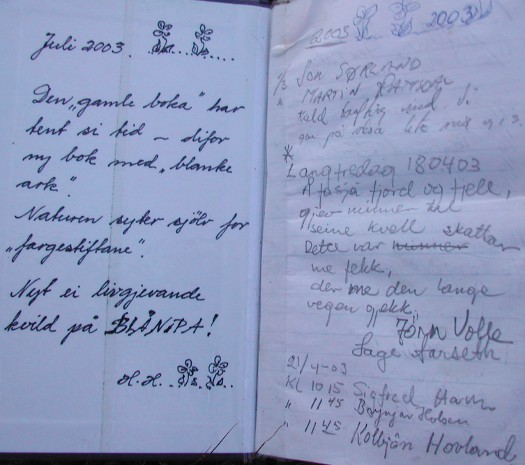 Juli 2003.
Den "gamle boka" har
tent si tid – difor
ny bok med "blanke
ark".
Naturen syter sjølv for
"fargestiftane".
Nyt ei livgjevande
kvild på BLÅNIPA!
H.H.
2003
1/3 Jon SØRLAND
" MARTIN
med
på
Langfredag 180403
Å fjord og fjell,
gjev minne til
seine kvell skatlar
Dette var minner
me fekk,
der me den lange
vegen gjekk.
Jörn Volle
Aarseth
21/4-03
KL 1015 Sigfred Ham
" 1145
" 1145 Kolbjön Hovland